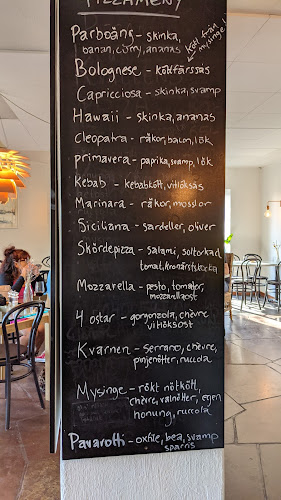 PIZZAMENY
Parboäns - skinka,
banan, curry, ananas
kött från
mysinge!
Bolognese - köttfärssås
Capricciosa - skinka, svamp
Hawaii - skinka, ananas
Cleopatra - räkor, bacon, lök
primavera - paprika, svamp, lök
Kebab - kebabkött, vitlöksås
Marinara - räkor, mosslor
Siciliana - sardeller, oliver
Skördepizza - salami, soltorkad
tomat, kronärtskocka
Mozzarella - pesto, tomater,
mozzarellaost
4 ostar - gorgonzola, chèvre
vitlöksost
Kvarnen - serrano, chèvre,
pinjenötter, ruccola
Mysinge - rökt nötkött,
chèvre, valnötter, egen
honung, ruccola
Pavarotti - oxfile, bea, svamp
sparris